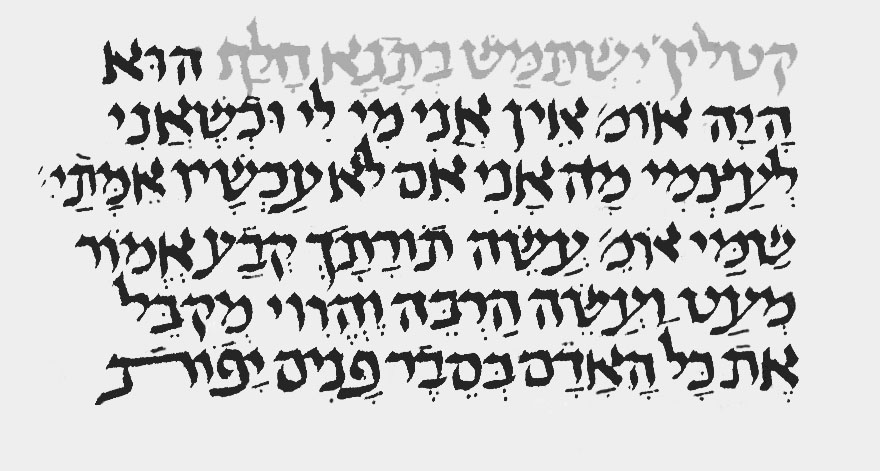 קטלין׳ ישתַמַּשׁ בְּתָגָא חָלַף הוּא
הָיָה אוֹמֵ׳ אין אֲנִי מִי לִי וּכְשֶׁאֲנִי
לְעַצְמִי מָה אָנִי אִם לֹא עַכְשָׁיו אֵמָּתַי׳
שַׁמַּי אומֵ׳ עֲשֵׂה תוֹרָתָךְ קֶבַע אֱמוֹר
מְעַט וַעֲשֵׂה הַרְבֵּה וֶהֱווי מְקַבֵּל
אֶת כָּל הָאָדָם בְּסֵבֶר פָּנִים יָפוֹת